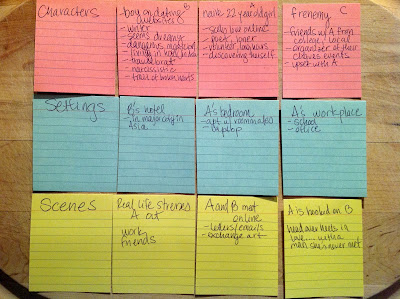 Characters
B
boy on dating
websites
- writer
- seems
dangerous
- living in hotel in Asia
- travel brat
- narcissistic
- trail of broken hearts
A
naive 22 year old girl
- seeks love online
- poet, loner
- discovering herself
C
frenemy
- friends w/ A from
college, local
- organizer of their
events
- upset with A
Settings
B's hotel
- in major city in
Asia
A's bedroom
- apt w/
- laptop
A's workplace
- school
- office
Scenes
Real life stresses
A out
work
friends
A and B met
online
- letters/emails
- exchange art
A is hooked on B
head over heels in
love.... with a
man she's never met